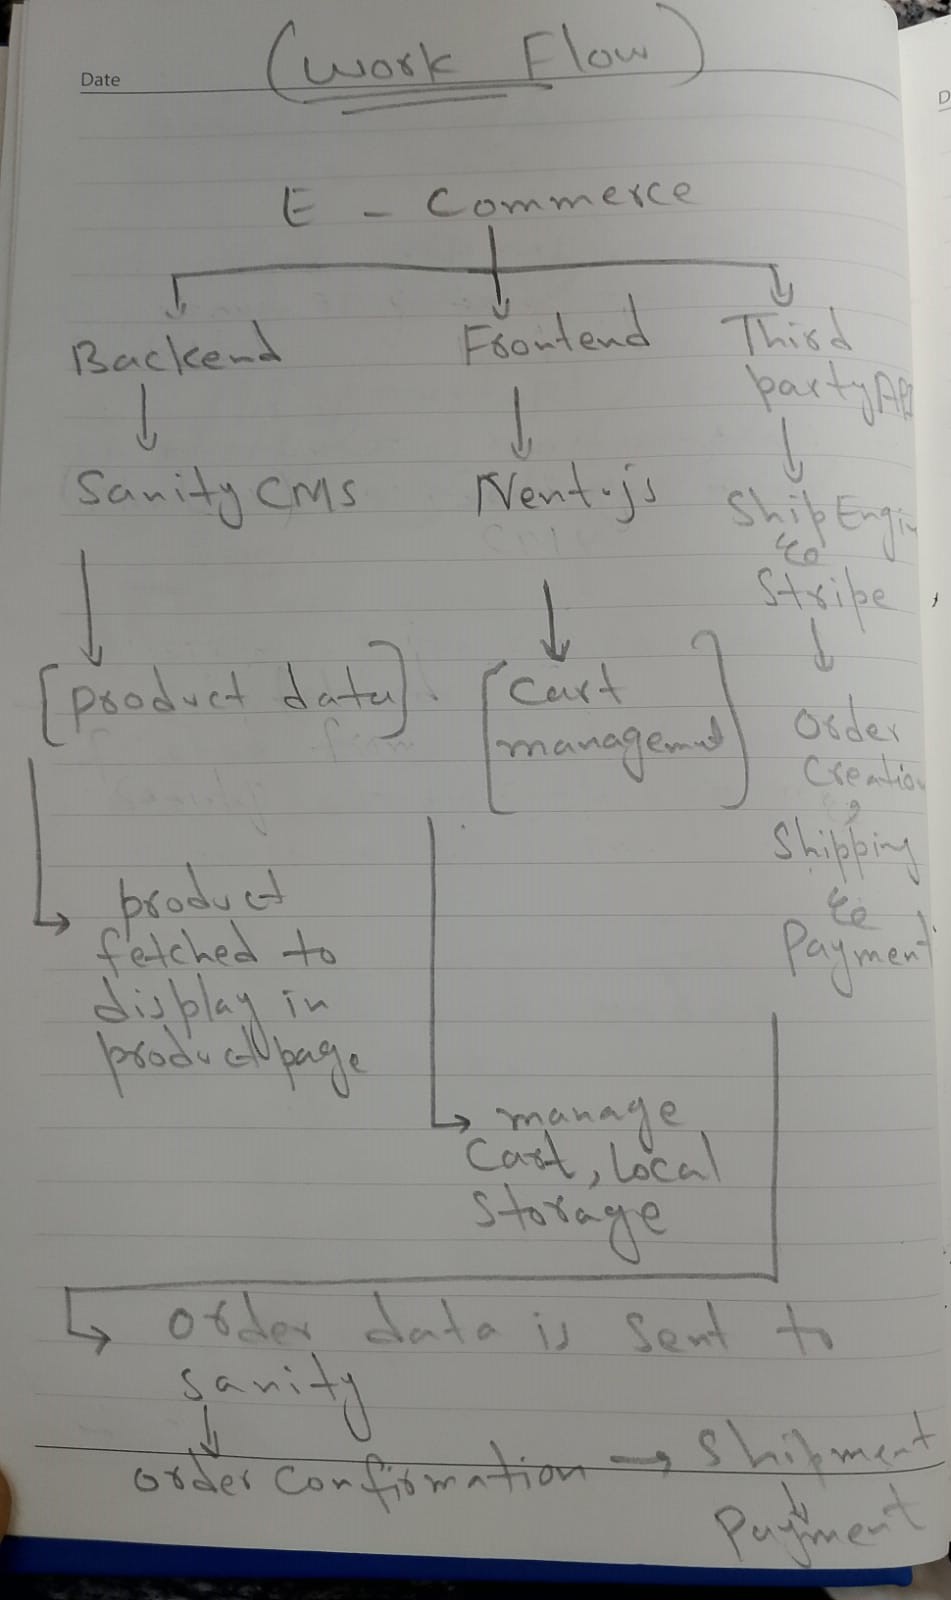 Date
(Work Flow)
E - Commerce
Backend
Sanity CMS
[product data].
product
fetched to
display in
product page
Frontend
Next.js
[Cart
management]
manage
Cart, Local
Storage
Third
party API
ShipEngin
&
Stripe
Order
Creation
,
Shipping
&
Payment
Order data is sent to
Sanity
Order Confirmation → Shipment
Payment